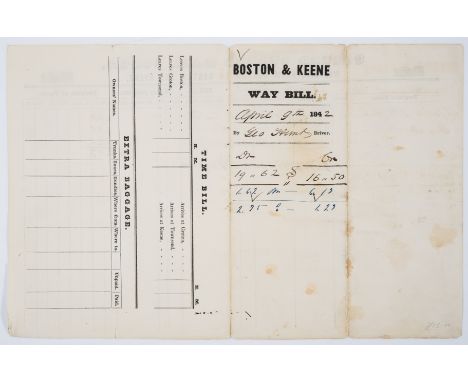 BOSTON & KEENE
WAY BILL.
April 9th 1842
By Geo Hunt Driver.
Dr Cr
19 " 62 16 " 50
TIME BILL.
H. M.
Leaves Boston,
Leaves Groton,
Leaves Townsend,
H. M.
Arrives at Groton,
Arrives at Townsend,
Arrives at Keene,
EXTRA BAGGAGE.
Owners' Names. Trunks. Boxes. Bundles. Where from. Where to. Unpaid. Paid.